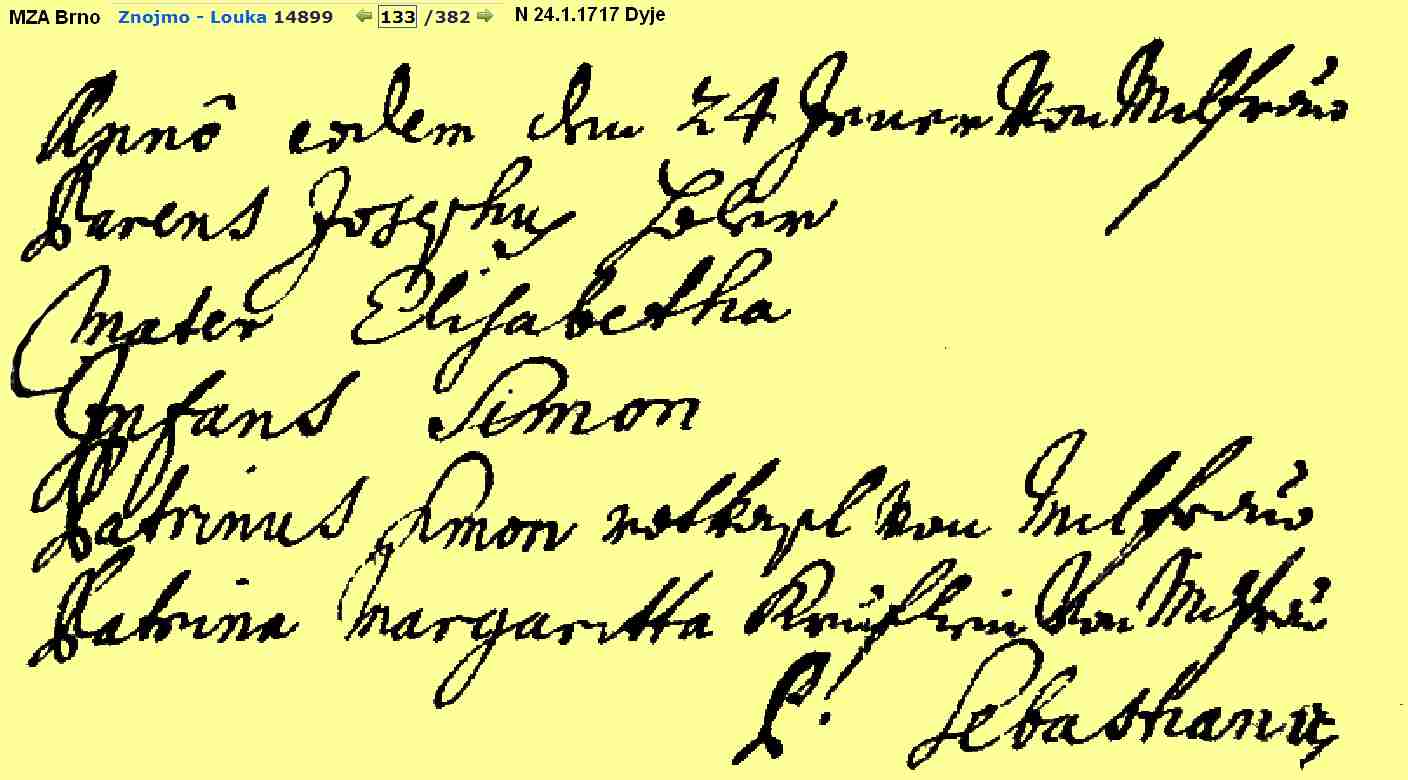 MZA Brno Znojmo - Louka 14899 133 /382 N 24.1.1717 Dyje
Annô eodem den 24 Jener Von Milfraŭ
Parens Josephus
Mater Elisabetha
Infans Simon
Patrinus Simon rotkepl Von Milfraŭ
Patrina Margaritta Von Milfraŭ
P: Sebastianus